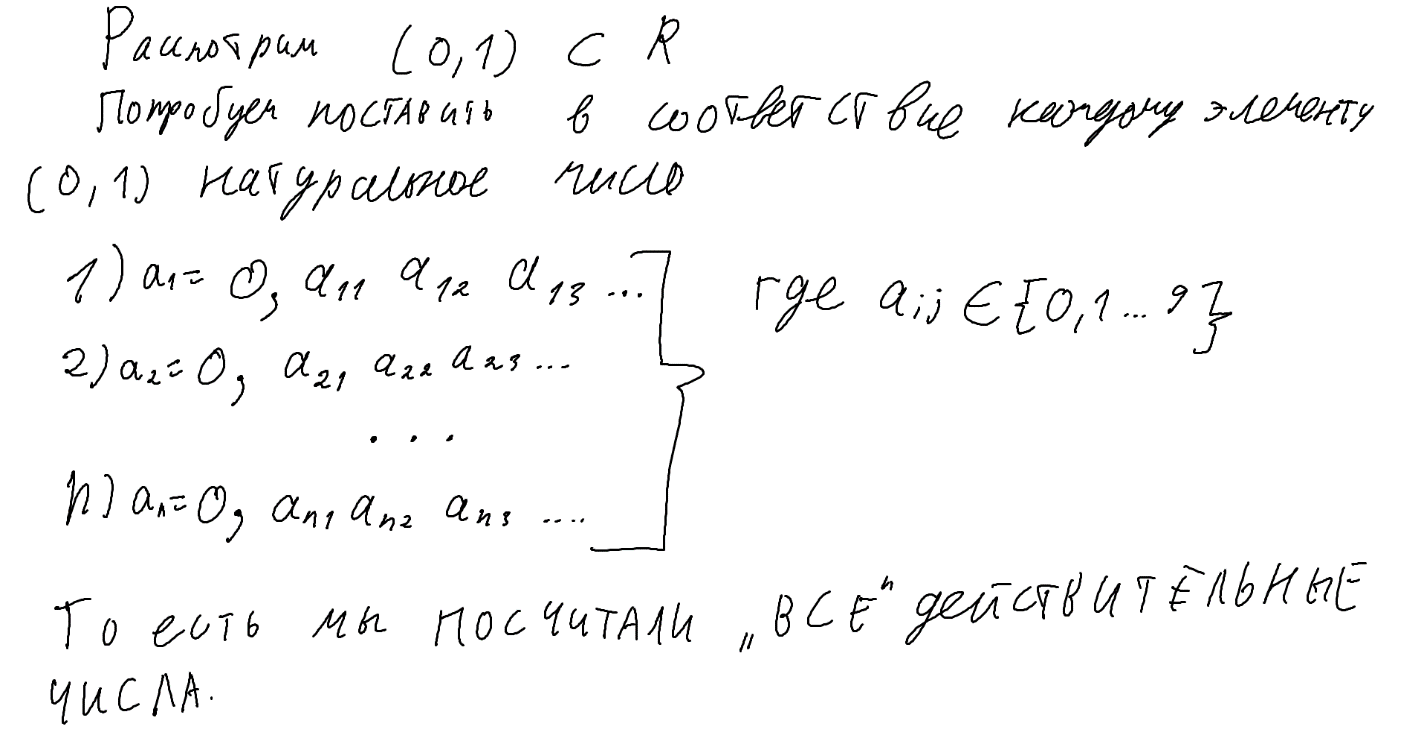 Рассмотрим (0,1) ⊂ R
Попробуем поставить в соответствие каждому элементу
(0,1) натуральное число
1) a₁= 0, a₁₁ a₁₂ a₁₃ ...
где aᵢⱼ ∈ {0,1...9}
2) a₂= 0, a₂₁ a₂₂ a₂₃ ...
. . .
n) aₙ= 0, aₙ₁ aₙ₂ aₙ₃ ....
То есть мы ПОСЧИТАЛИ „ВСЕ" действИТЕЛЬНЫЕ
ЧИСЛА.